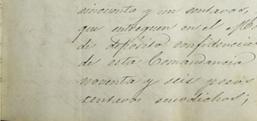 cincuenta y un centavos,
que entreguen en el
de depósito confidencia
de esta Comandancia
noventa y seis pesos
centavos susodichos;